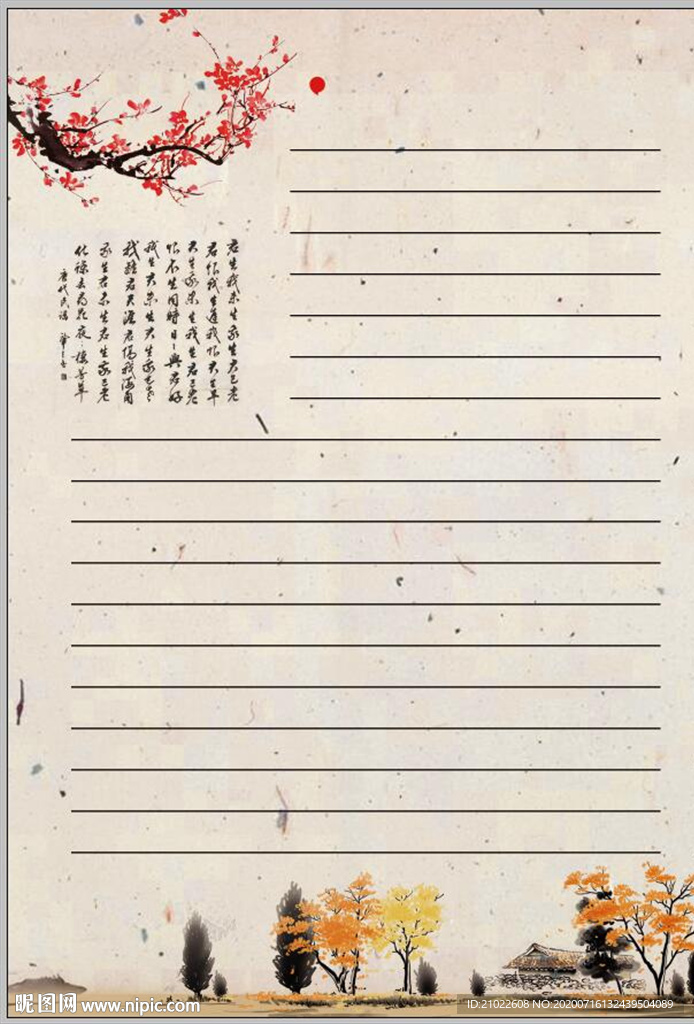 君生我未生我生君已老
君恨我生遲我恨君生早
君生我未生我生君已老
恨不生同時日日與君好
我生君未生君生我已老
我離君天涯君隔我海角
我生君未生君生我已老
化蝶去尋花夜夜棲芳草
唐代民謠
昵图网 www.nipic.com
ID:21022608 NO:20200716132439504089